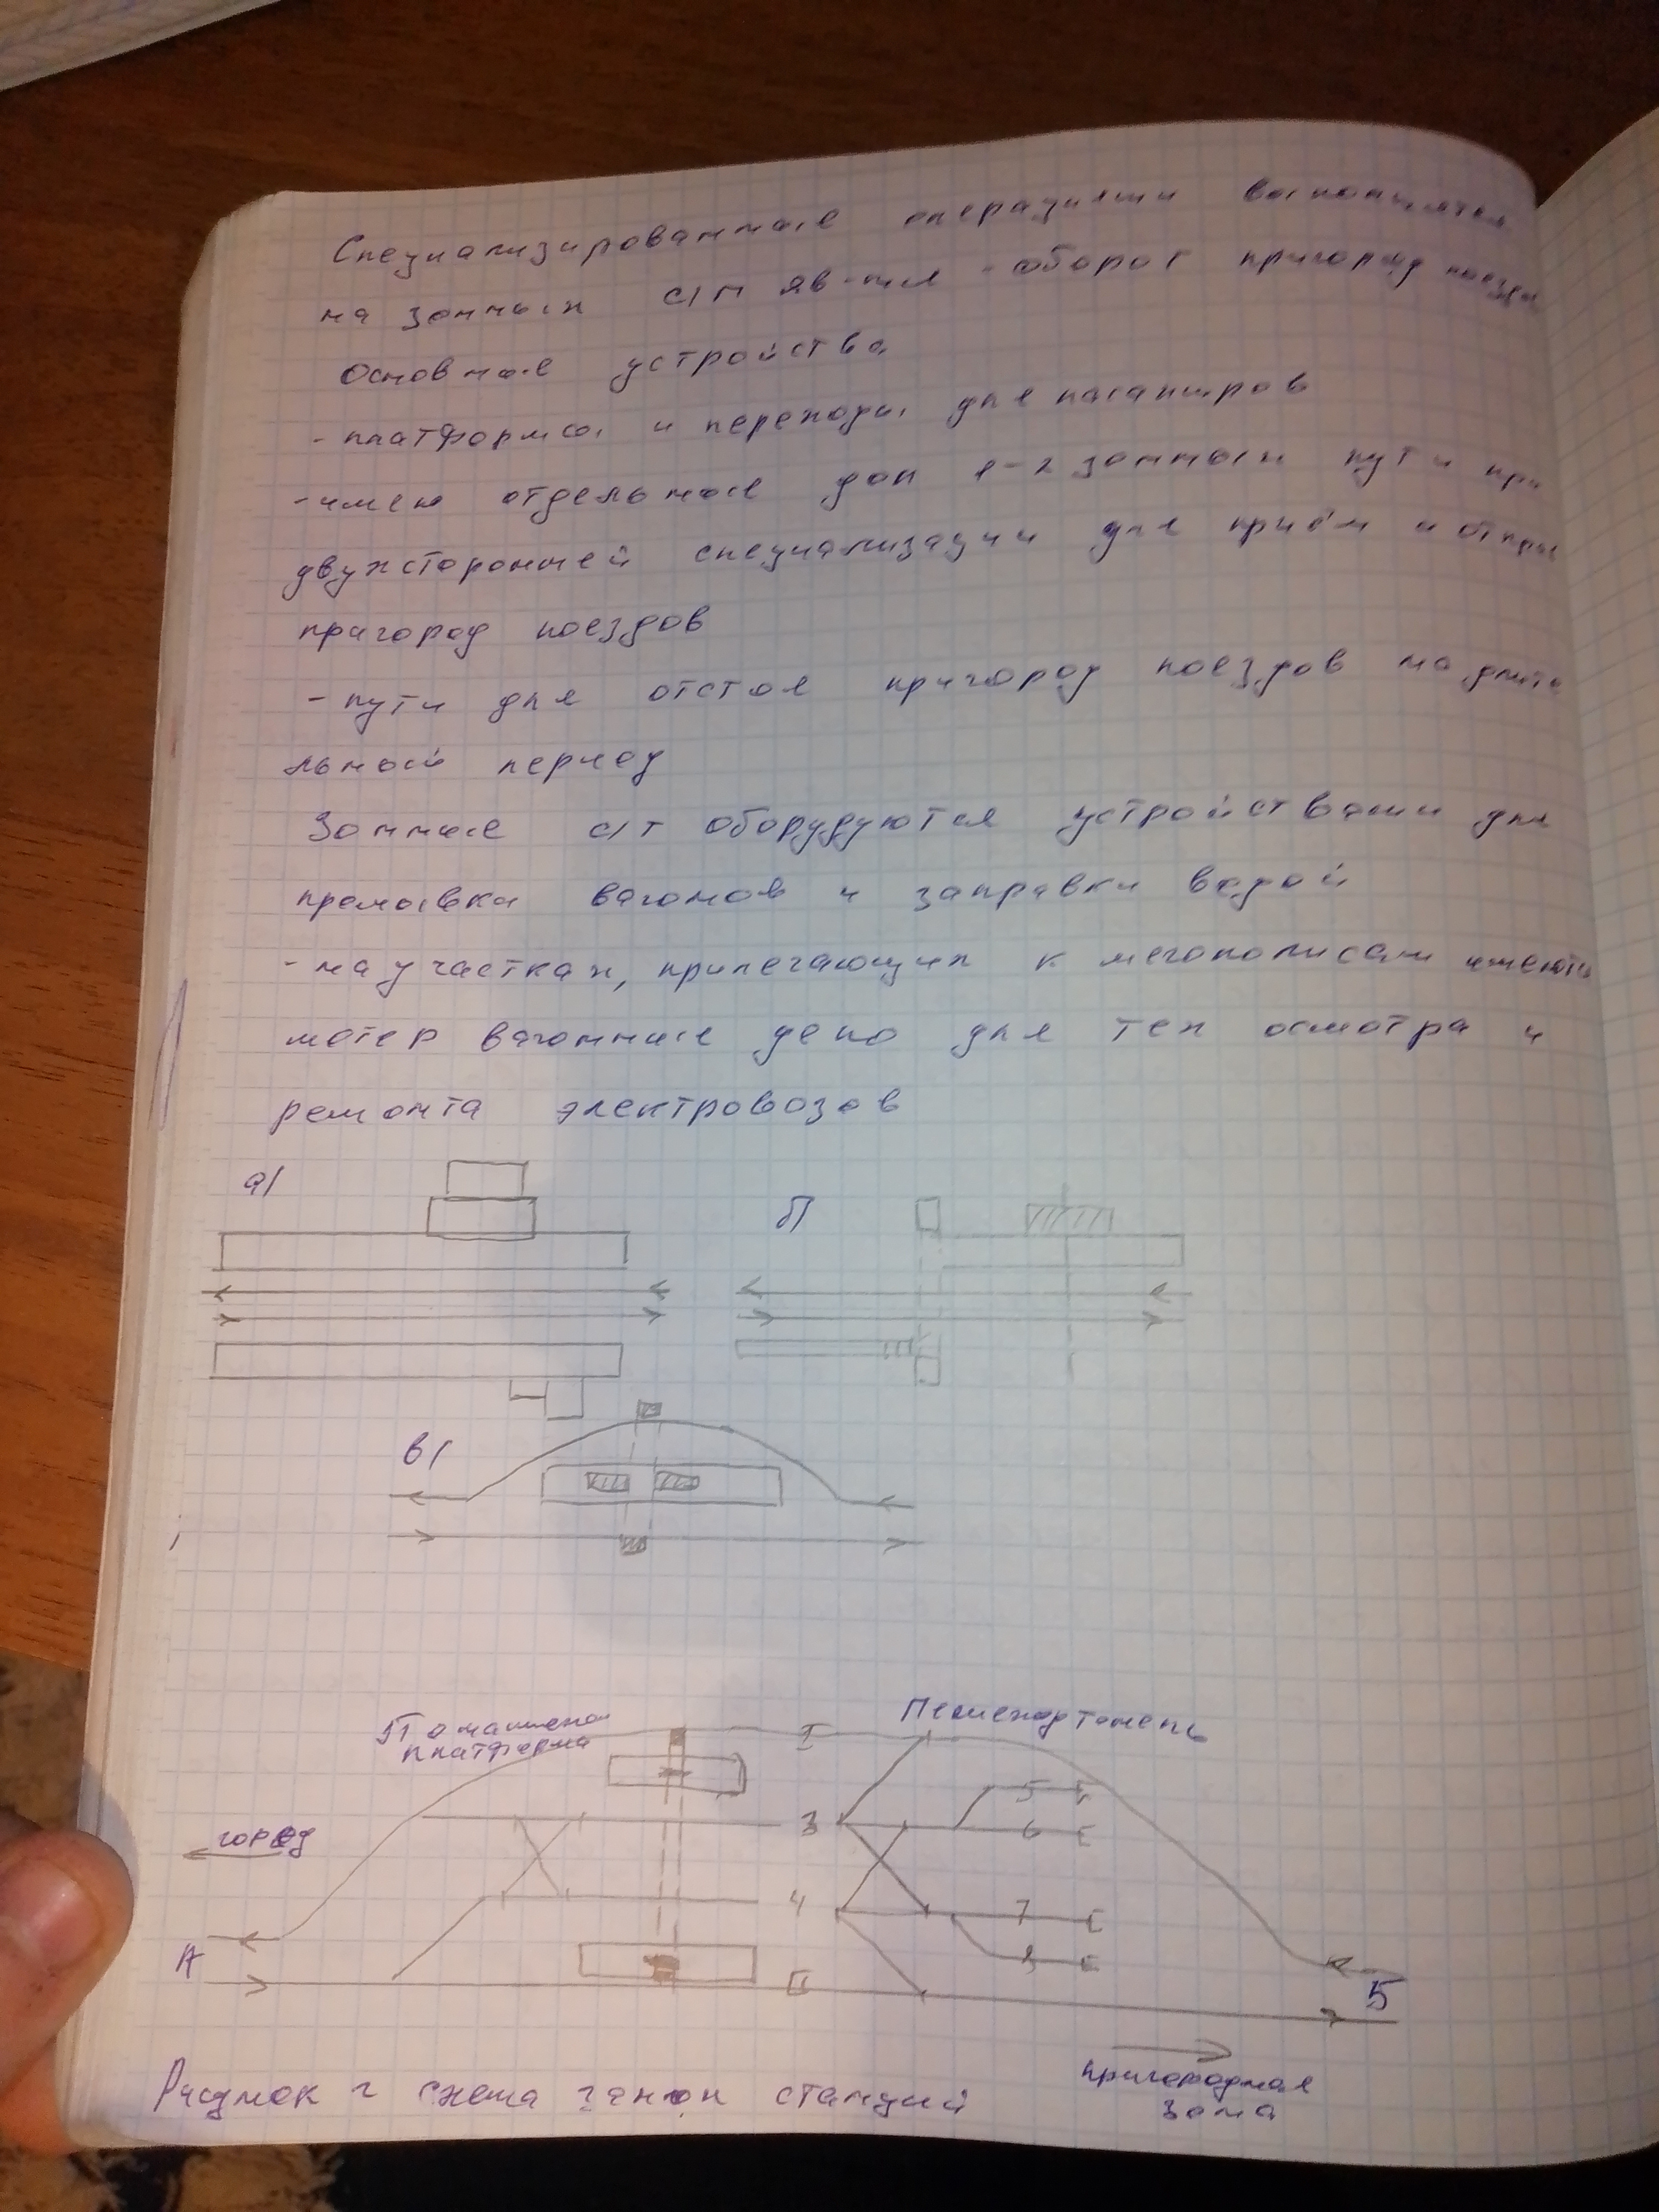 Специализированные операциями
на зонных с/п яв-тся - оборот пригород поезд
Основные устройства
- платформы и переходы для пасажиров
- имею отдельные доп 1-2 зонных пути при
двухсторонней специализации для приём и отпра
пригород поездов
- пути для отстоя пригород поездов на длите
льный период
Зонные с/т оборудуются устройствами для
промывка вагонов и заправки водой
- на участках, прилегающих к мегополисам имеются
мотер вагонные депо для тех осмотра и
ремонта электровозов
а)
б)
в)
платформа
I
Пешеход тонель
5
3
6
город
4
7
8
А
II
Б
пригородная
зона
Рисунок 2 схема зонон станций